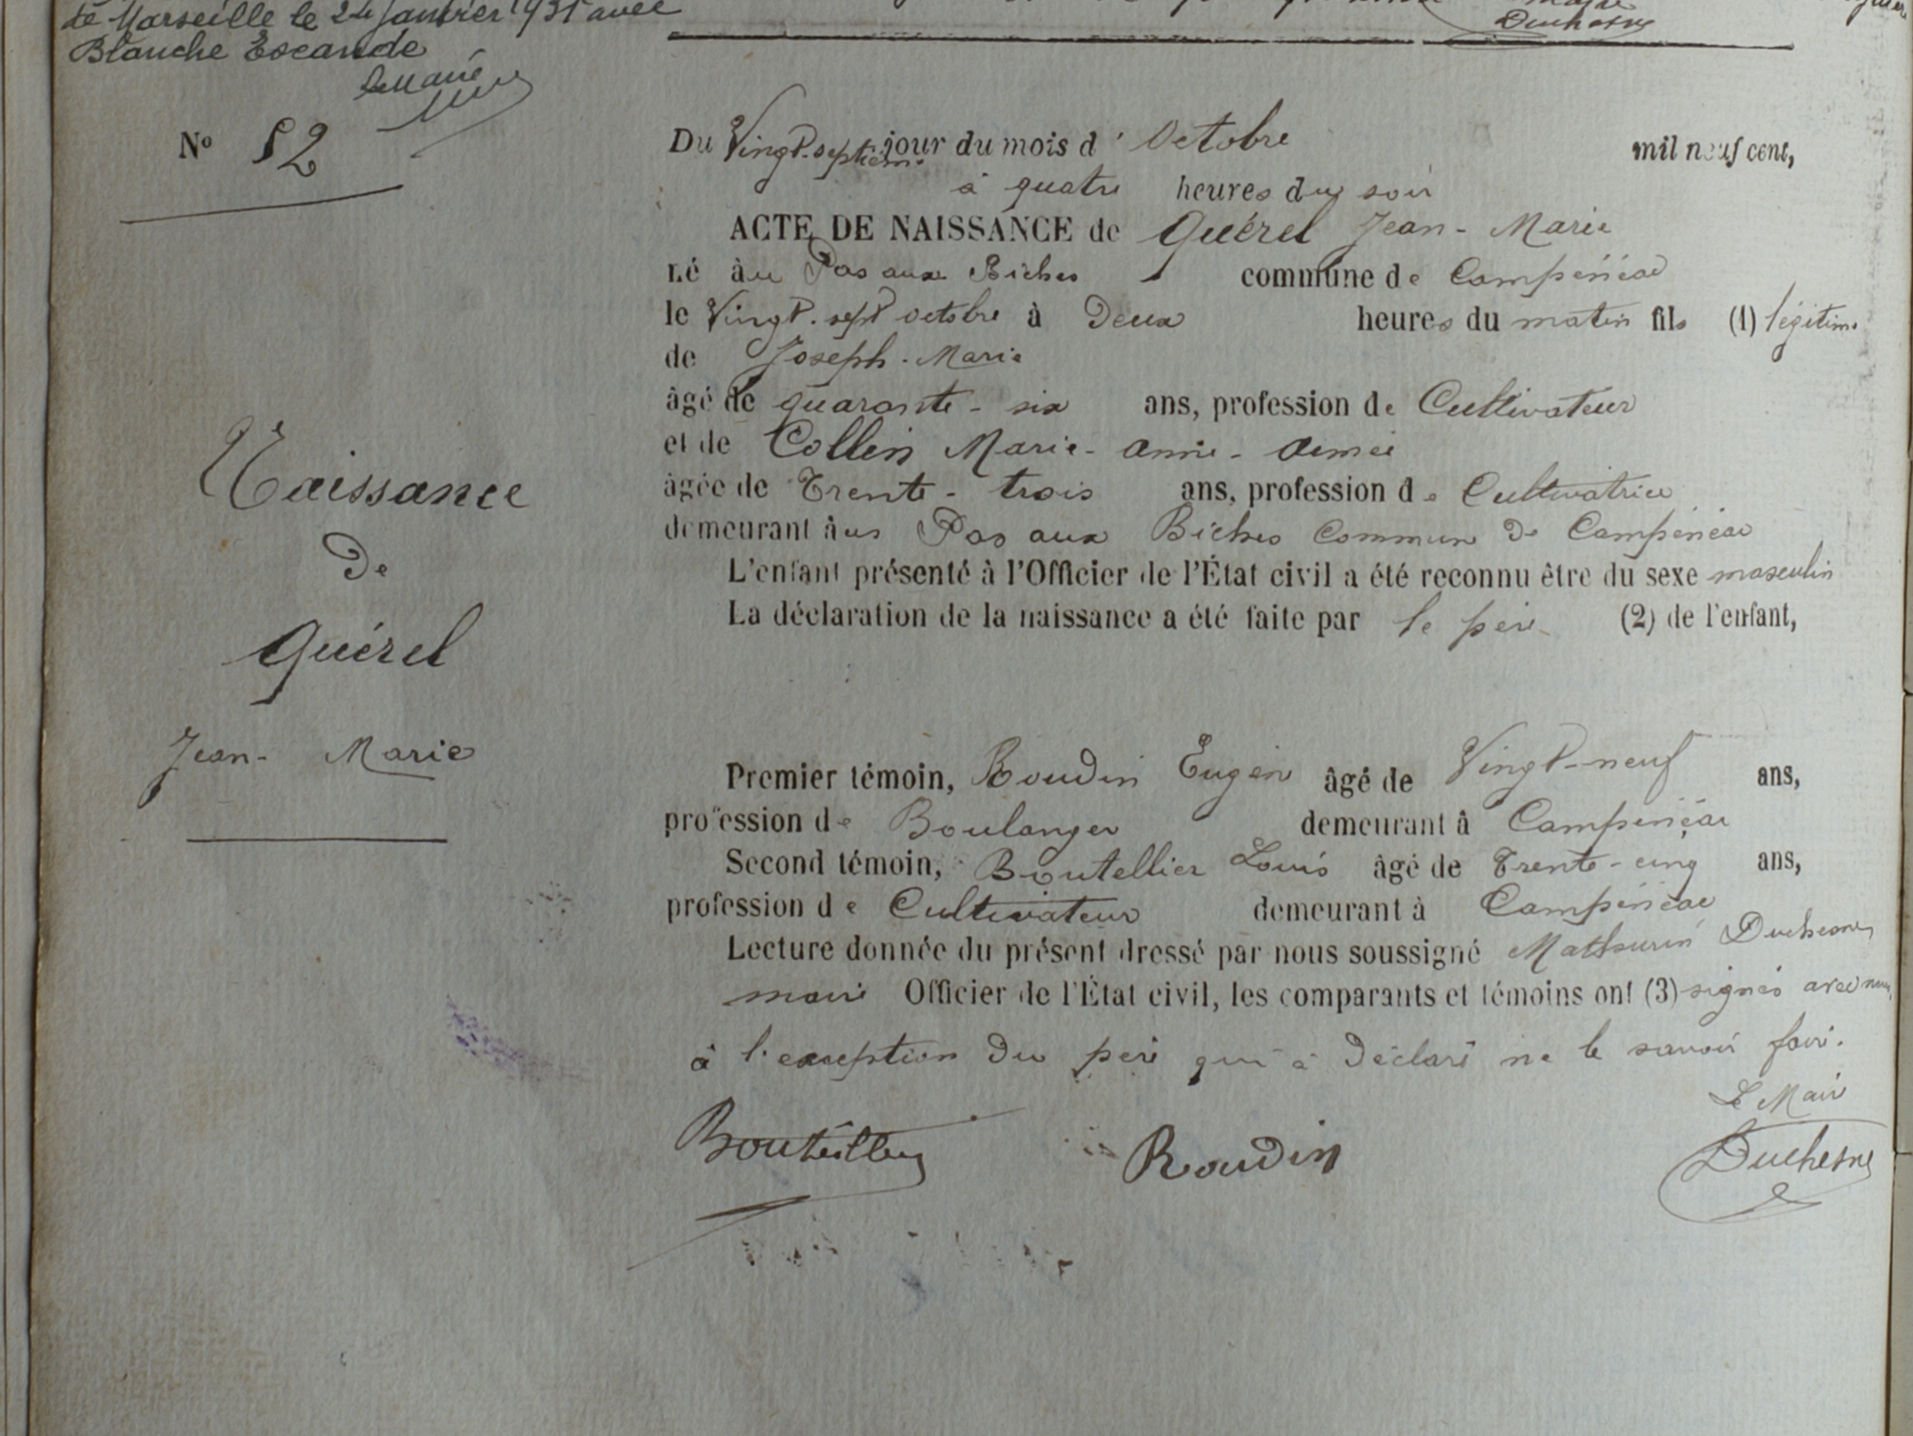 de Marseille le 24 Janvier 1931 avec
Blanche Escande
Duchesne
No 82
Du Vingt-septième jour du mois d' Octobre mil neuf cent,
à quatre heures du soir
ACTE DE NAISSANCE de Guérel Jean-Marie
né au Pas aux Biches commune de Campénéac
le Vingt-sept octobre à Deux heures du matin fils (1) légitime
de Joseph-Marie
âgé de quarante-six ans, profession de Cultivateur
et de Collin Marie-Anne-Aimée
âgée de Trente-trois ans, profession de Cultivatrice
demeurant au Pas aux Biches Commune de Campénéac
L'enfant présenté à l'Officier de l'État civil a été reconnu être du sexe masculin
La déclaration de la naissance a été faite par le père (2) de l'enfant,
Naissance
De
Guérel
Jean-Marie
Premier témoin, Roudin Eugène âgé de Vingt-neuf ans,
profession de Boulanger demeurant à Campénéac
Second témoin, Boutellier Louis âgé de Trente-cinq ans,
profession de Cultivateur demeurant à Campénéac
Lecture donnée du présent dressé par nous soussigné Mathurin Duchesne
maire Officier de l'État civil, les comparants et témoins ont (3) signés avec nous
à l'exception du père qui à déclaré ne le savoir faire.
Le Maire
Bouteiller Roudin Duchesne